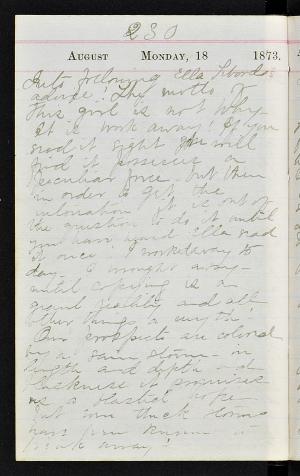 230
August Monday, 18 1873.
Just following Ella
advice! The motto of
this girl is not Why
it is work away! If you
read it right you will
find it possesses a
peculiar force. but then
in order to get the
intonation it is out of
the question to do it until
you have heard Ella read
it once. I worked away to
day. I wrought away
until copying is a
grand reality and all
other things a myth!
Our prospects are colored
by a rain storm in
length and depth and
darkness it promises
as a blasted hope
But even thick storms
have been known to
break away!